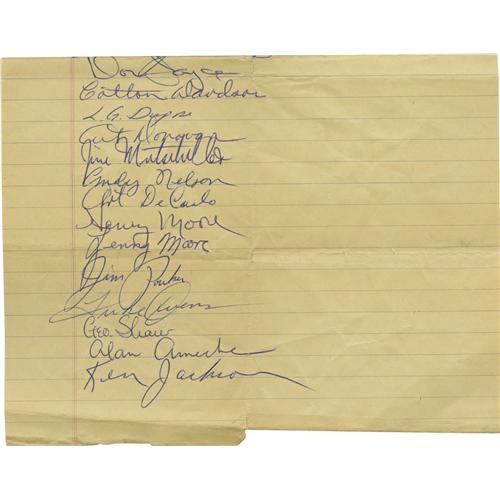 Don Joyce
Cotton Davidson
L.G. Dupre
Art Donovan
Jim Mutscheller
Andy Nelson
Art DeCarlo
Henry Moore
Lenny Moore
Jim Parker
Luke Owens
Geo. Shaw
Alan Ameche
Ken Jackson